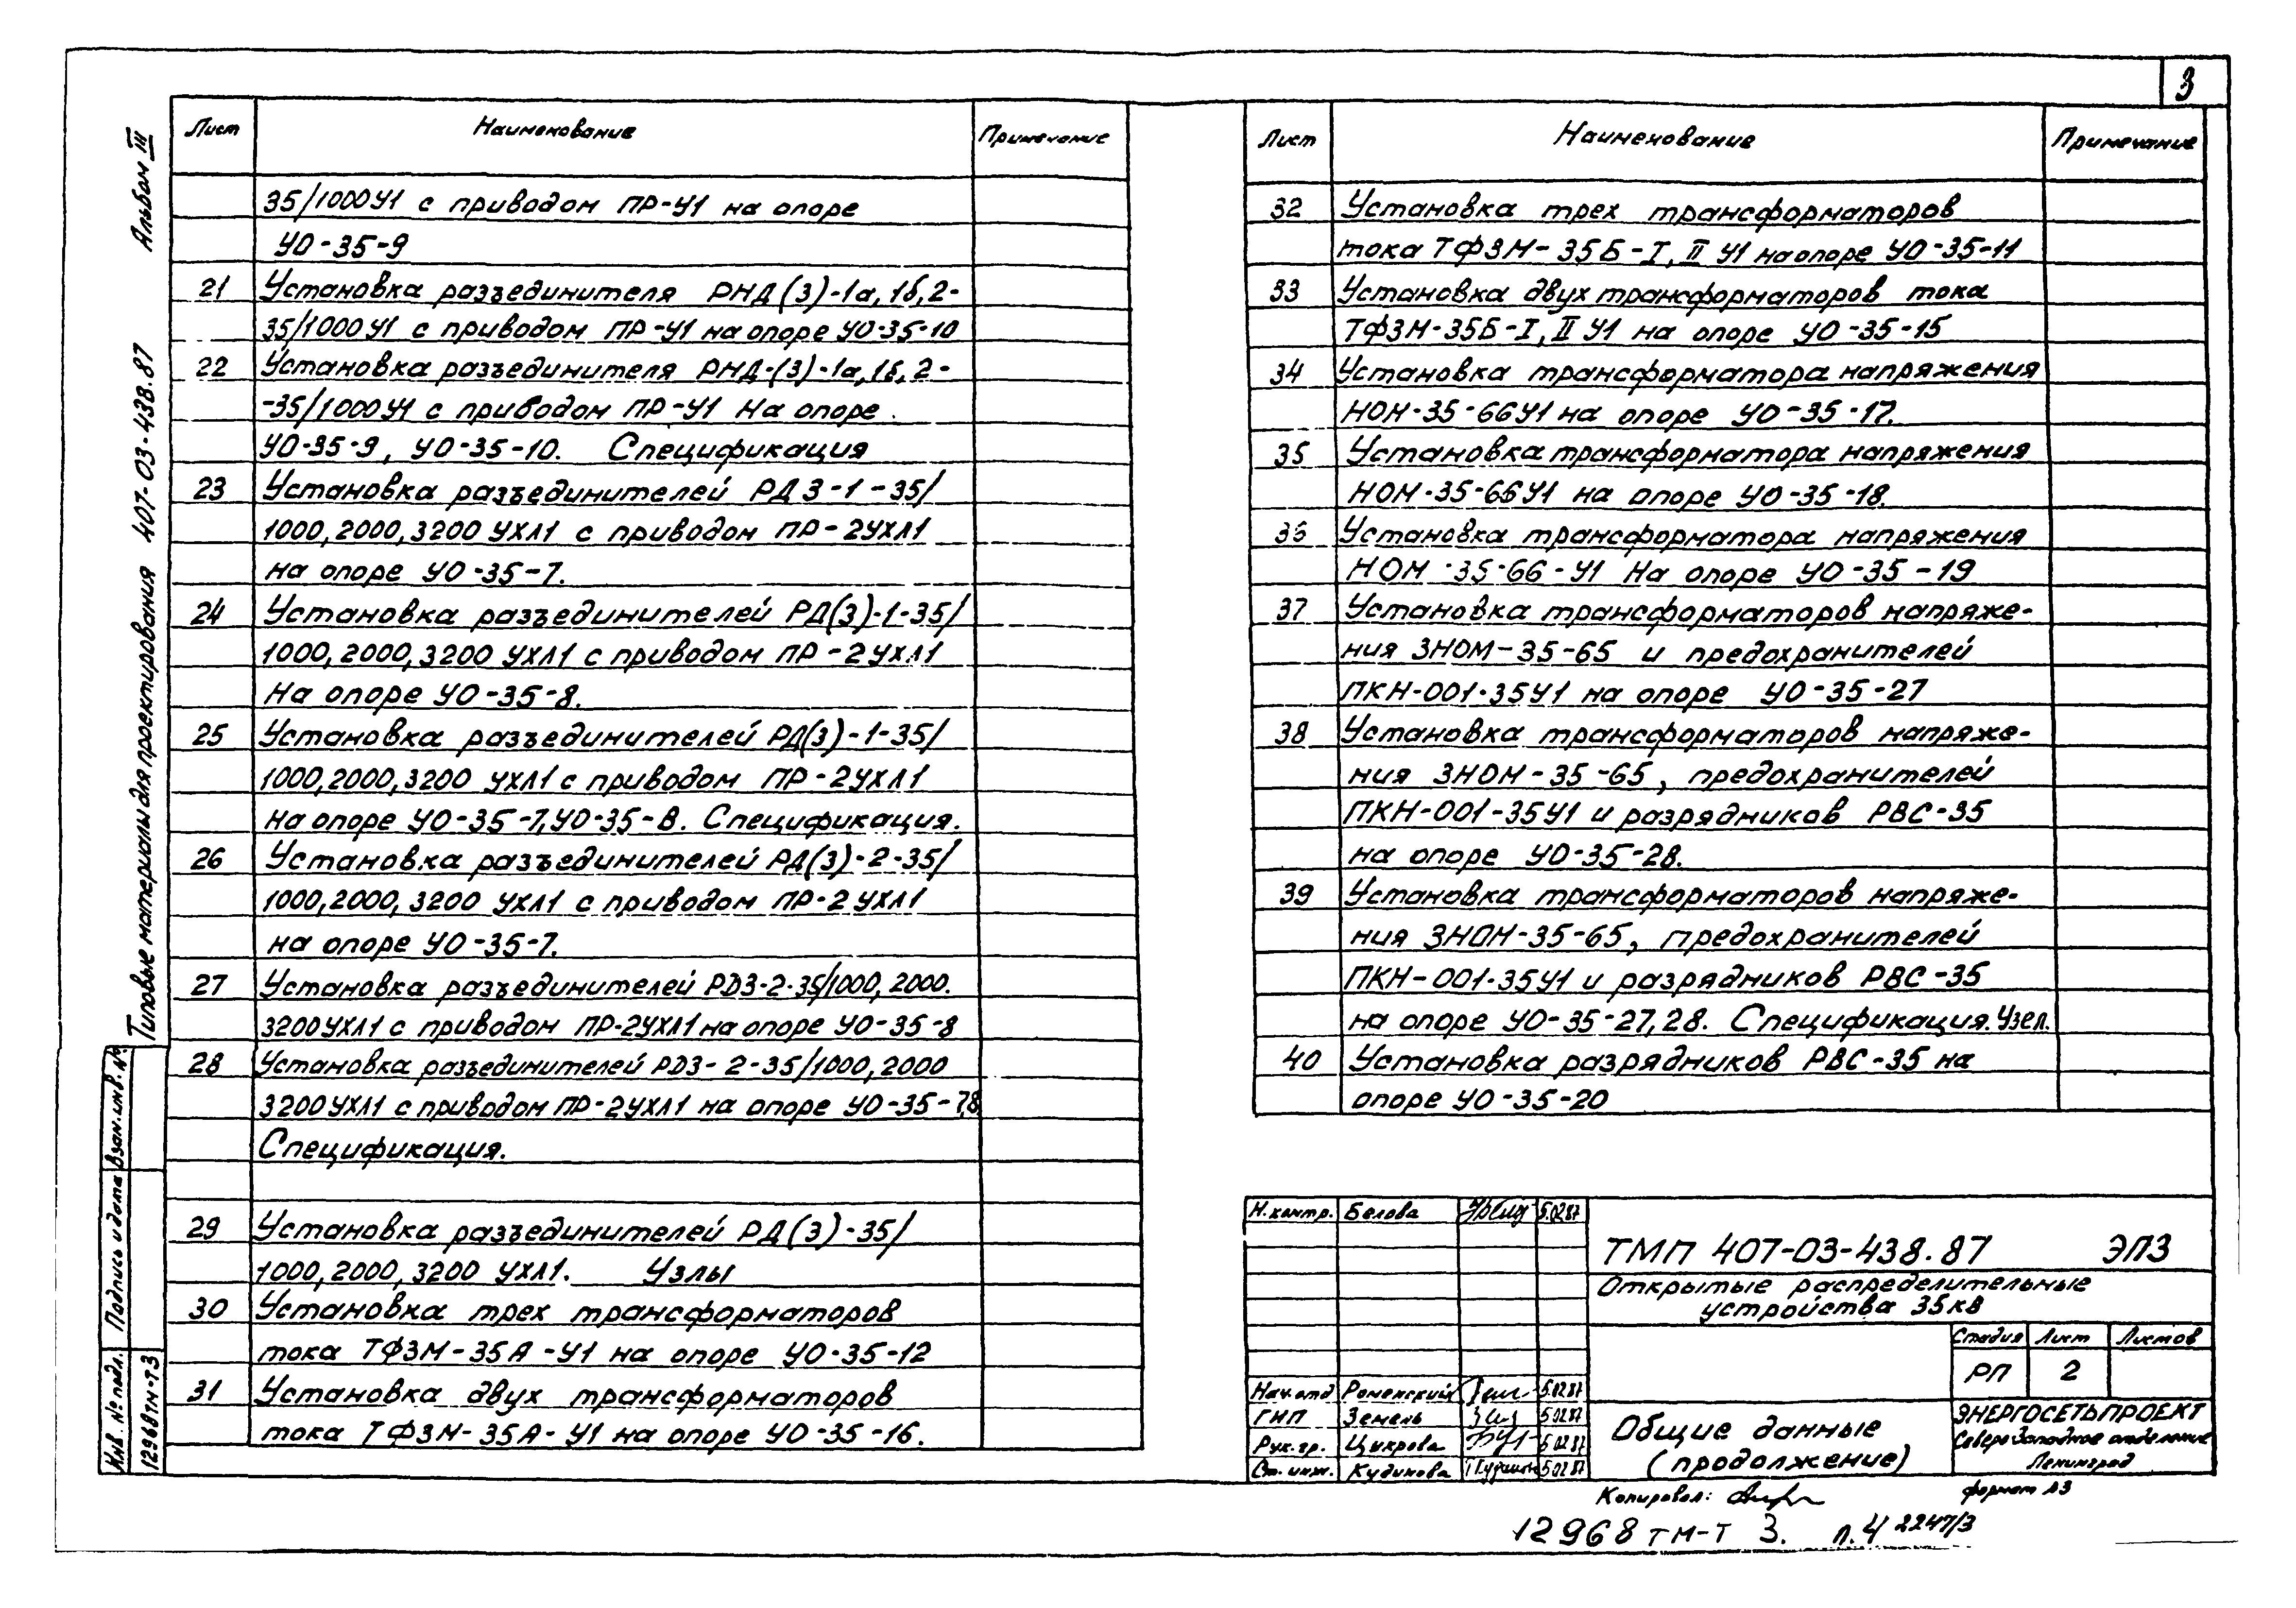 3
Альбом III
Типовые материалы для проектирования 407-03-438.87
Лист Наименование Примечание
35/1000У1 с приводом ПР-У1 на опоре
УО-35-9
21 Установка разъединителя РНД(З)-1а,1б,2-
35/1000У1 с приводом ПР-У1 на опоре УО-35-10
22 Установка разъединителя РНД-(З)-1а,1б,2-
-35/1000У1 с приводом ПР-У1 На опоре
УО-35-9, УО-35-10. Спецификация
23 Установка разъединителей РДЗ-1-35/
1000,2000,3200 УХЛ1 с приводом ПР-2УХЛ1
на опоре УО-35-7.
24 Установка разъединителей РД(З)-1-35/
1000,2000,3200 УХЛ1 с приводом ПР-2УХЛ1
На опоре УО-35-8.
25 Установка разъединителей РД(З)-1-35/
1000,2000,3200 УХЛ1 с приводом ПР-2УХЛ1
на опоре УО-35-7,УО-35-8. Спецификация.
26 Установка разъединителей РД(З)-2-35/
1000,2000,3200 УХЛ1 с приводом ПР-2УХЛ1
на опоре УО-35-7.
27 Установка разъединителей РДЗ-2-35/1000,2000.
3200УХЛ1 с приводом ПР-2УХЛ1 на опоре УО-35-8
28 Установка разъединителей РДЗ-2-35/1000,2000
3200УХЛ1 с приводом ПР-2УХЛ1 на опоре УО-35-7,8
Спецификация.
29 Установка разъединителей РД(З)-35/
1000,2000,3200 УХЛ1. Узлы
30 Установка трех трансформаторов
тока ТФЗМ-35А-У1 на опоре УО-35-12
31 Установка двух трансформаторов
тока ТФЗМ-35А-У1 на опоре УО-35-16.
Лист Наименование Примечание
32 Установка трех трансформаторов
тока ТФЗМ-35Б-I,II У1 на опоре УО-35-11
33 Установка двух трансформаторов тока
ТФЗМ-35Б-I,II У1 на опоре УО-35-15
34 Установка трансформатора напряжения
НОМ-35-66У1 на опоре УО-35-17.
35 Установка трансформатора напряжения
НОМ-35-66У1 на опоре УО-35-18.
36 Установка трансформатора напряжения
НОМ-35-66-У1 На опоре УО-35-19
37 Установка трансформаторов напряже-
ния ЗНОМ-35-65 и предохранителей
ПКН-001-35У1 на опоре УО-35-27
38 Установка трансформаторов напряже-
ния ЗНОМ-35-65, предохранителей
ПКН-001-35У1 и разрядников РВС-35
на опоре УО-35-28.
39 Установка трансформаторов напряже-
ния ЗНОМ-35-65, предохранителей
ПКН-001-35У1 и разрядников РВС-35
на опоре УО-35-27,28. Спецификация.Узел.
40 Установка разрядников РВС-35 на
опоре УО-35-20
Инв. № подл. Подпись и дата Взам.инв.№
12968тм-т3
Н.контр. Белова 5.02.87
Нач.отд Роменский 5.02.87
ГИП Земель 5.02.87
Рук.гр. Цукрова 5.02.87
Ст.инж. Кудинова 5.02.87
ТМП 407-03-438.87 ЭП3
Открытые распределительные
устройства 35кв
Стадия Лист Листов
РП 2
Общие данные
(продолжение)
ЭНЕРГОСЕТЬПРОЕКТ
Северо Западное отделение
Ленинград
Копировал:
формат А3
12968тм-т 3. л.4 2247/3